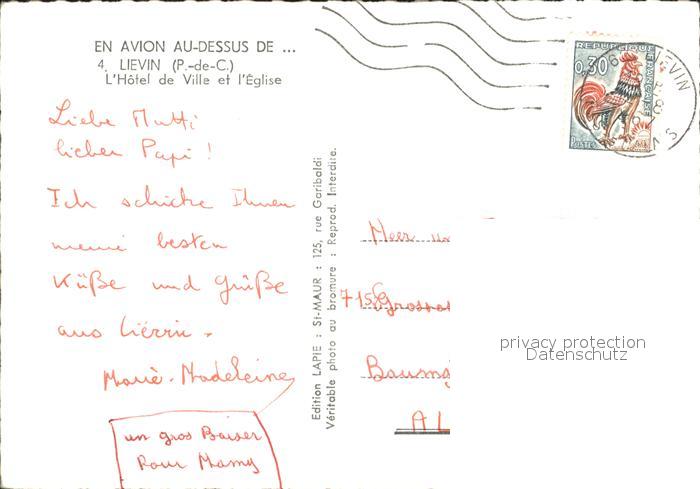 EN AVION AU-DESSUS DE ...
4. LIEVIN (P.-de-C.)
L'Hôtel de Ville et l'Église
Liebe Mutti
lieber Papi !
Ich schicke Ihnen
meine besten
Küße und Grüße
aus Liévin.
Marie-Madeleine
un gros Baiser
Pour Mamy
Edition LAPIE : St-MAUR : 125, rue Garibaldi
Véritable photo au bromure : Reprod. Interdite.
REPUBLIQUE
FRANÇAISE
0,30
POSTES
LIEVIN
715
Baum
AL
privacy protection
Datenschutz